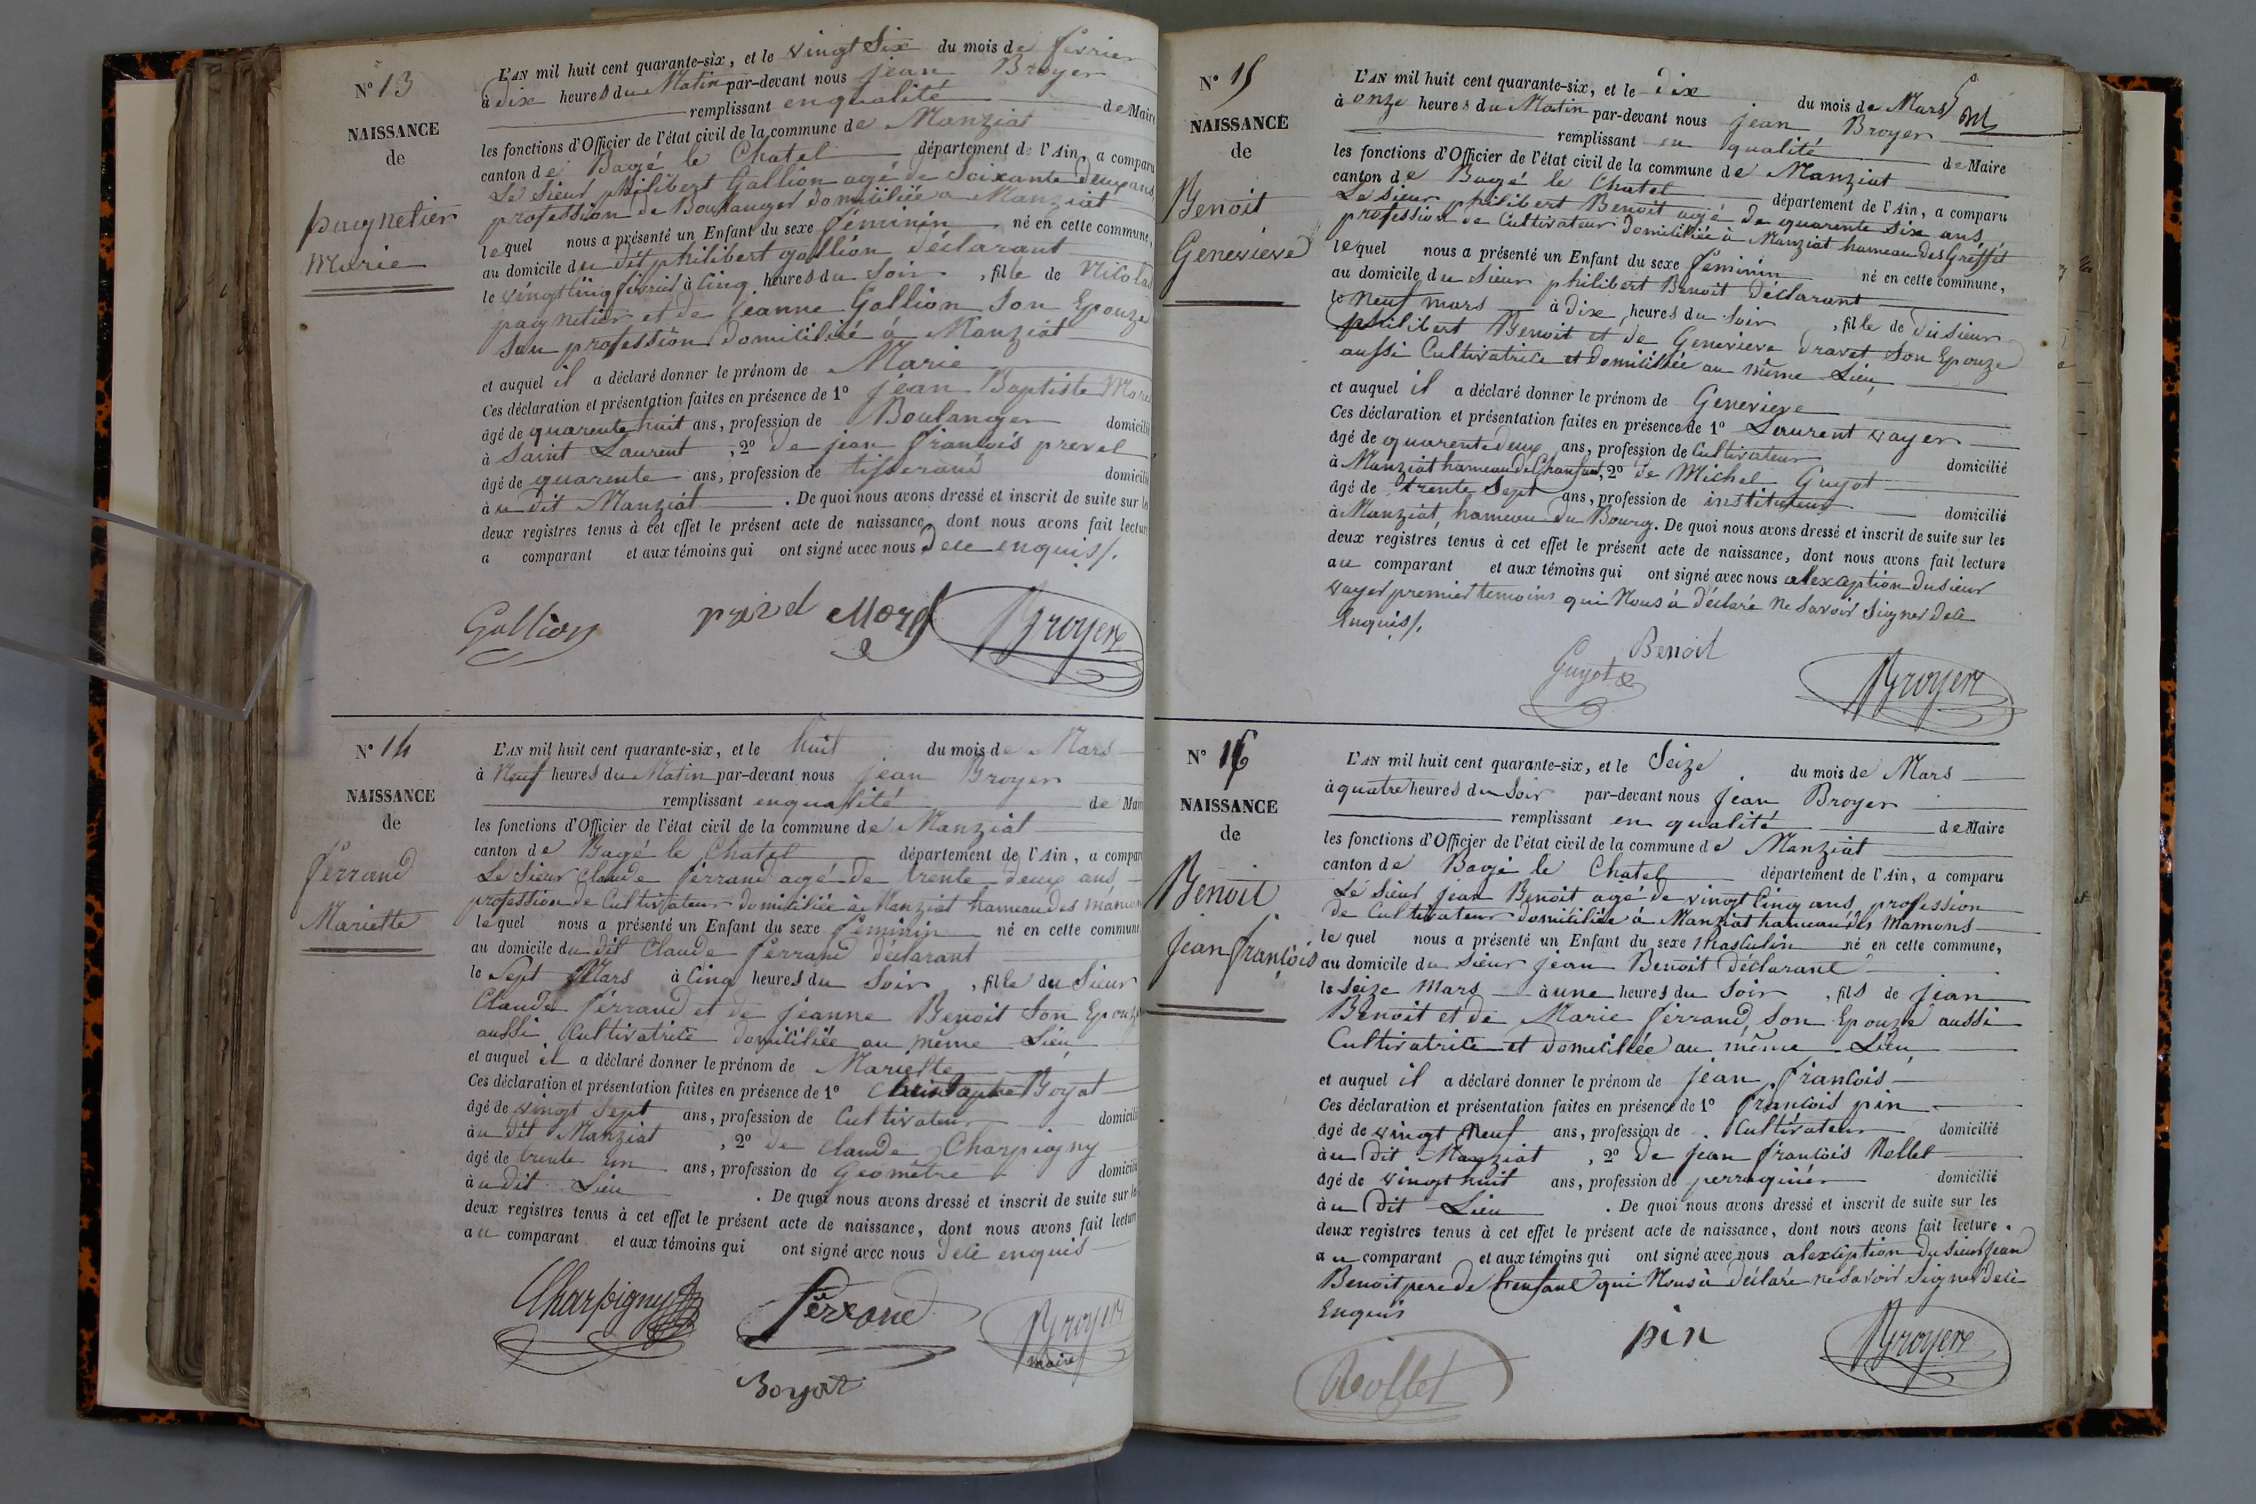 N° 13
NAISSANCE
de
paugnetier
Marie
L'AN mil huit cent quarante-six, et le vingt Six du mois de fevrier
à dix heures du Matin par-devant nous jean Broyer
remplissant en qualité de Maire
les fonctions d'Officier de l'état civil de la commune de Manziat
canton de Bagé le Chatel département de l'Ain, a comparu
Le Sieur philibert Gallion agé de Soixante deux ans,
profession de Boulanger domiciliée a Manziat
lequel nous a présenté un Enfant du sexe féminin né en cette commune,
au domicile du dit philibert gallion déclarant
le vingt Cinq fevrier à Cinq heures du Soir, fille de Nicolas
paugnetier et de jeanne Gallion Son Epouze
San profession domicilié à Manziat
et auquel il a déclaré donner le prénom de Marie
Ces déclaration et présentation faites en présence de 1° jean Baptiste
âgé de quarente huit ans, profession de Boulanger domicilié
à Saint Laurent, 2° de jean francois prevel
âgé de quarente ans, profession de tisserand domicilié
à u dit Manziat. De quoi nous avons dressé et inscrit de suite sur les
deux registres tenus à cet effet le présent acte de naissance, dont nous avons fait lecture
a comparant et aux témoins qui ont signé avec nous de ce enquis/.
Gallion
Broyer
N° 14
NAISSANCE
de
ferrand
Mariette
L'AN mil huit cent quarante-six, et le huit du mois de Mars
à Neuf heures du Matin par-devant nous jean Broyer
remplissant en qualité de Maire
les fonctions d'Officier de l'état civil de la commune de Manziat
canton de Bagé le Chatel département de l'Ain, a comparu
Le Sieur Claude ferrand agé de trente deux ans
profession de Cultivateur domiciliée à Manziat hameau des
lequel nous a présenté un Enfant du sexe féminin né en cette commune
au domicile du dit Claude ferrand déclarant
le Sept Mars à Cinq heures du Soir, fille du Sieur
Claude ferrand et de jeanne Benoit Son Epouze
aussi Cultivatrice domiciliée au même Lieu
et auquel il a déclaré donner le prénom de Mariette
Ces déclaration et présentation faites en présence de 1° Boyat
âgé de vingt Sept ans, profession de Cultivateur domicilié
à u dit Manziat, 2° de Claude Charpigny
âgé de trente un ans, profession de Géomètre domicilié
à u dit Lieu. De quoi nous avons dressé et inscrit de suite sur les
deux registres tenus à cet effet le présent acte de naissance, dont nous avons fait lecture
au comparant et aux témoins qui ont signé avec nous de ce enquis
Charpigny
ferrand
Broyer
maire
Boyat
N° 15
NAISSANCE
de
Benoit
Genevieve
L'AN mil huit cent quarante-six, et le dix du mois de Mars
à onze heures du Matin par-devant nous jean Broyer
remplissant en qualité de Maire
les fonctions d'Officier de l'état civil de la commune de Manziat
canton de Bagé le Chatel département de l'Ain, a comparu
Le Sieur philibert Benoit agé de quarente six ans,
profession de Cultivateur domiciliée à Manziat hameau des Greffet
lequel nous a présenté un Enfant du sexe féminin né en cette commune,
au domicile du Sieur philibert Benoit déclarant
le Neuf mars à dix heures du Soir, fille de du Sieur
philibert Benoit et de Genevieve dravet Son Epouze
aussi Cultivatrice et domiciliée au même Lieu
et auquel il a déclaré donner le prénom de Genevieve
Ces déclaration et présentation faites en présence de 1° Laurent vayer
âgé de quarente deux ans, profession de Cultivateur domicilié
à Manziat hameau de Chanfant, 2° de Michel Guyot
âgé de trente Sept ans, profession de instituteur domicilié
à Manziat, hameau du Bourg. De quoi nous avons dressé et inscrit de suite sur les
deux registres tenus à cet effet le présent acte de naissance, dont nous avons fait lecture
au comparant et aux témoins qui ont signé avec nous alexception du Sieur
vayer premier temoins qui Nous à déclaré ne Savoir Signer de ce
Enquis/.
Benoit
Guyot
Broyer
N° 16
NAISSANCE
de
Benoit
jean françois
L'AN mil huit cent quarante-six, et le Seize du mois de Mars
à quatre heures du Soir par-devant nous jean Broyer
remplissant en qualité de Maire
les fonctions d'Officier de l'état civil de la commune de Manziat
canton de Bagé le Chatel département de l'Ain, a comparu
Le Sieur jean Benoit agé de vingt Cinq ans, profession
de Cultivateur domiciliée à Manziat hameau des Mamons
lequel nous a présenté un Enfant du sexe Masculin né en cette commune,
au domicile du Sieur jean Benoit déclarant
le Seize Mars à une heures du Soir, fils de jean
Benoit et de Marie ferrand, Son Epouze aussi
Cultivatrice et domiciliée au même Lieu
et auquel il a déclaré donner le prénom de jean francois
Ces déclaration et présentation faites en présence de 1° francois pin
âgé de vingt Neuf ans, profession de Cultivateur domicilié
à u dit Manziat, 2° de jean francois Nollet
âgé de vingt huit ans, profession de perruquiér domicilié
à u dit Lieu. De quoi nous avons dressé et inscrit de suite sur les
deux registres tenus à cet effet le présent acte de naissance, dont nous avons fait lecture.
au comparant et aux témoins qui ont signé avec nous alexception du Sieur jean
Benoit pere de L'enfant qui Nous à déclaré ne Savoir Signer de ce
Enquis
pin
Broyer
Nollet